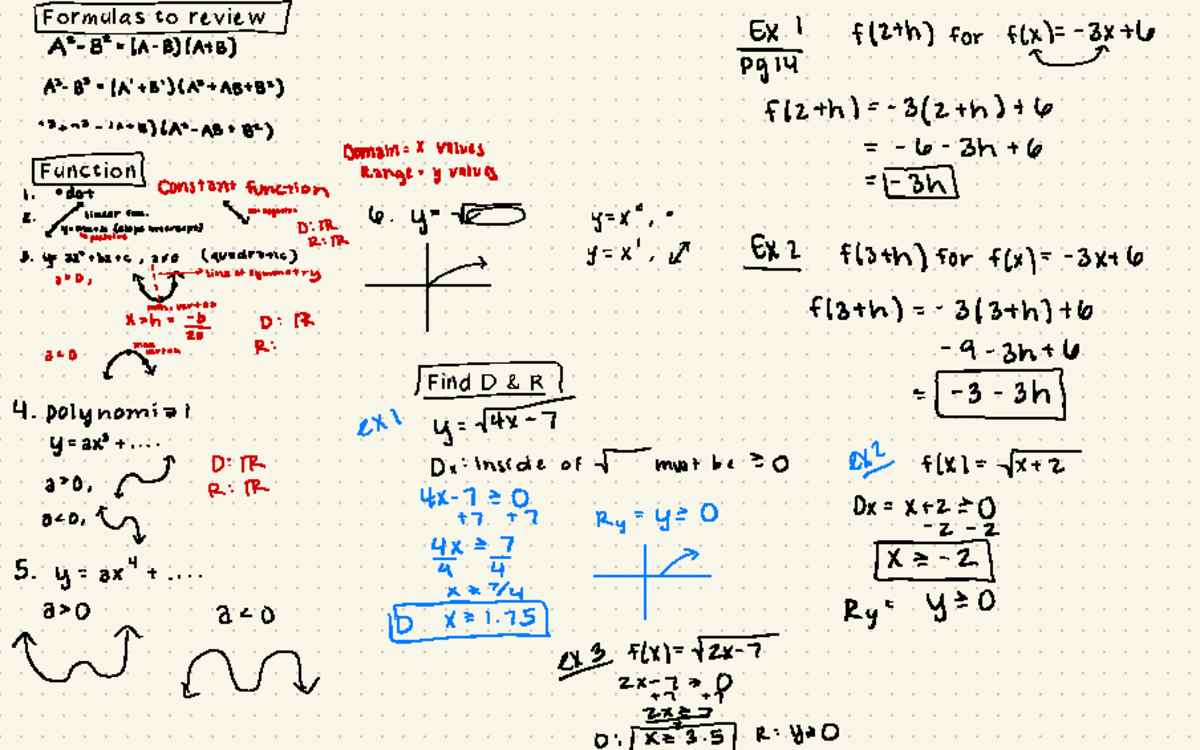 Formulas to review
A² - B² = (A - B)(A + B)
A³ - B³ = (A¹ + B¹)(A² + AB + B²)
(A² - AB + B²)
Function
1. • dot
Constant function
2. linear fun.
D: ℝ
R: ℝ
3. y = ax² + bx + c, a≠0 (quadratic)
a>0,
line of symmetry
min. vertex
x = h = -b/2a
D: ℝ
R:
a<0
max
vertex
4. polynomial
y = ax³ + ....
a>0,
a<0,
D: ℝ
R: ℝ
5. y = ax⁴ + ....
a>0
a<0
Domain = x values
Range = y values
6. y = √
y = x⁰, •
y = x¹,
Find D & R
ex 1
y = √4x - 7
Dx: inside of √ must be ≥ 0
4x - 7 ≥ 0
+7 +7
4x ≥ 7
4 4
x ≥ 7/4
D x ≥ 1.75
Ry = y ≥ 0
ex 3 f(x) = √2x - 7
2x - 7 ≥ 0
+7 +7
2x ≥ 7
D: x ≥ 3.5 R: y ≥ 0
Ex 1
pg 14
f(2+h) for f(x) = -3x + 6
f(2+h) = -3(2+h) + 6
= -6 - 3h + 6
= -3h
Ex 2 f(3+h) for f(x) = -3x + 6
f(3+h) = -3(3+h) + 6
-9 - 3h + 6
= -3 - 3h
ex 2 f(x) = √x + 2
Dx = x + 2 ≥ 0
-2 -2
x ≥ -2
Ry = y ≥ 0